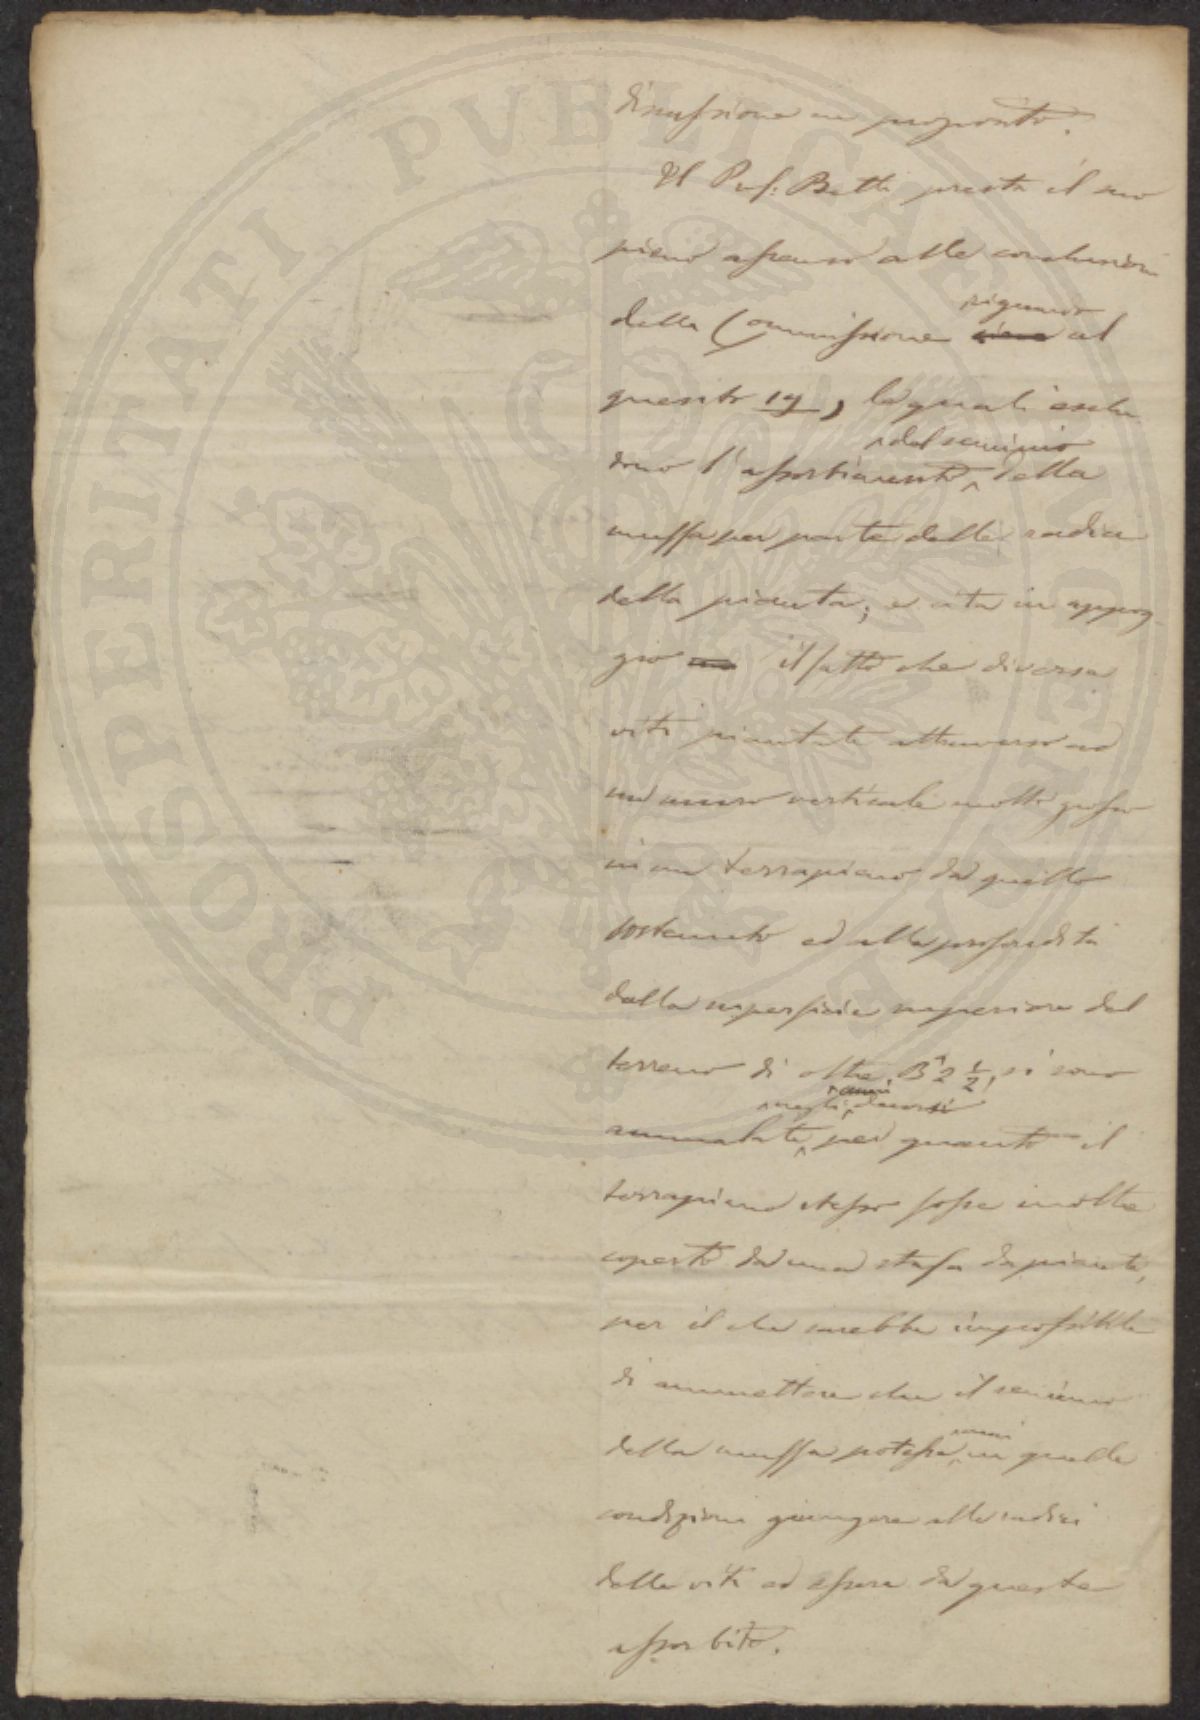 discussione in proposito.
Il Prof: Betti presta il suo
pieno assenso alle conclusioni
riguardo
della Commissione al
quesito 19, le quali esclu
del seminio
dono l'assorbimento della
muffa per parte delle radici
della pianta; e cita in appog-
gio il fatto che diverse
viti piantate attraverso ad
un muro verticale molto grosso
in un terrapieno da quello
sostenuto ed alla profondità
dalla superficie superiore del
terreno di oltre B.ª 2 1/2, si sono
negli decorsi
ammalate per quanto il
terrapieno stesso fosse inoltre
coperto da una stufa da piante,
per il che sarebbe impossibile
di ammettere che il seminio
della muffa potesse in quelle
condizioni giungere alle radici
delle viti ed essere da queste
assorbito.
PROSPERITATI PUBLICAE AUGENDAE